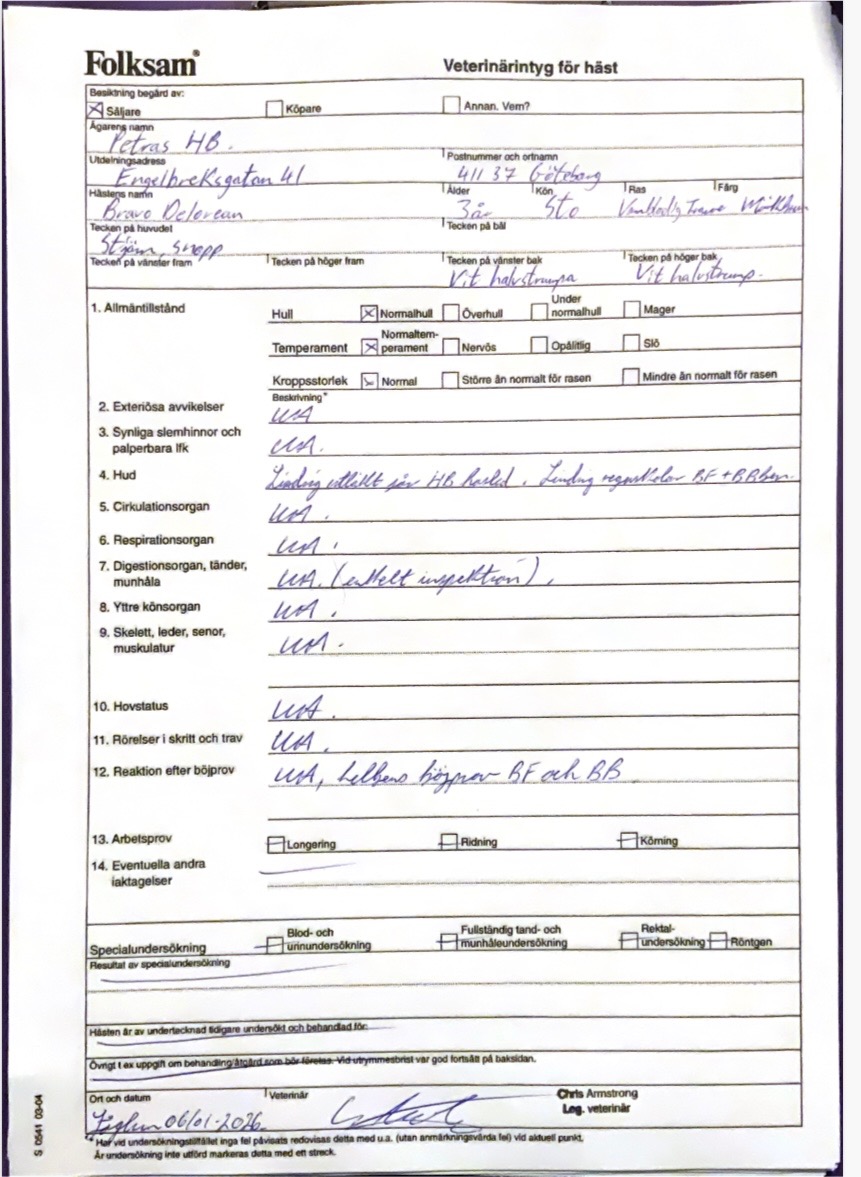 Folksam®
Veterinärintyg för häst
Besiktning begärd av:
Säljare Köpare Annan. Vem?
Ägarens namn
Petras HB.
Utdelningsadress Postnummer och ortnamn
Engelbreksgatan 41 411 37 Göteborg
Hästens namn Ålder Kön Ras Färg
Bravo Delorean 3år Sto
Tecken på huvudet Tecken på bål
Stjärn, snopp
Tecken på vänster fram Tecken på höger fram Tecken på vänster bak Tecken på höger bak
Vit halvstrumpa Vit halvstrump.
1. Allmäntillstånd
Hull Normalhull Överhull Under normalhull Mager
Temperament Normaltemperament Nervös Opålitlig Slö
Kroppsstorlek Normal Större än normalt för rasen Mindre än normalt för rasen
Beskrivning*
2. Exteriösa avvikelser UA
3. Synliga slemhinnor och
palperbara lfk UA.
4. Hud Lindrig sår HB . Lindrig BF + BB
5. Cirkulationsorgan UA.
6. Respirationsorgan UA.
7. Digestionsorgan, tänder,
munhåla UA. (enkelt inspektion).
8. Yttre könsorgan UA.
9. Skelett, leder, senor,
muskulatur UA.
10. Hovstatus UA.
11. Rörelser i skritt och trav UA.
12. Reaktion efter böjprov UA, helbens böjprov BF och BB
13. Arbetsprov Longering Ridning Körning
14. Eventuella andra
iaktagelser
Specialundersökning Blod- och urinundersökning Fullständig tand- och munhåleundersökning Rektalundersökning Röntgen
Resultat av specialundersökning
Hästen är av undertecknad tidigare undersökt och behandlad för:
Övrigt t ex uppgift om behandling/åtgärd som bör företas. Vid utrymmesbrist var god fortsätt på baksidan.
Ort och datum Veterinär Chris Armstrong
06/01-2026 Leg. veterinär
** Har vid undersökningstillfället inga fel påvisats redovisas detta med u.a. (utan anmärkningsvärda fel) vid aktuell punkt.
Är undersökning inte utförd markeras detta med ett streck.
S 0541 03-04